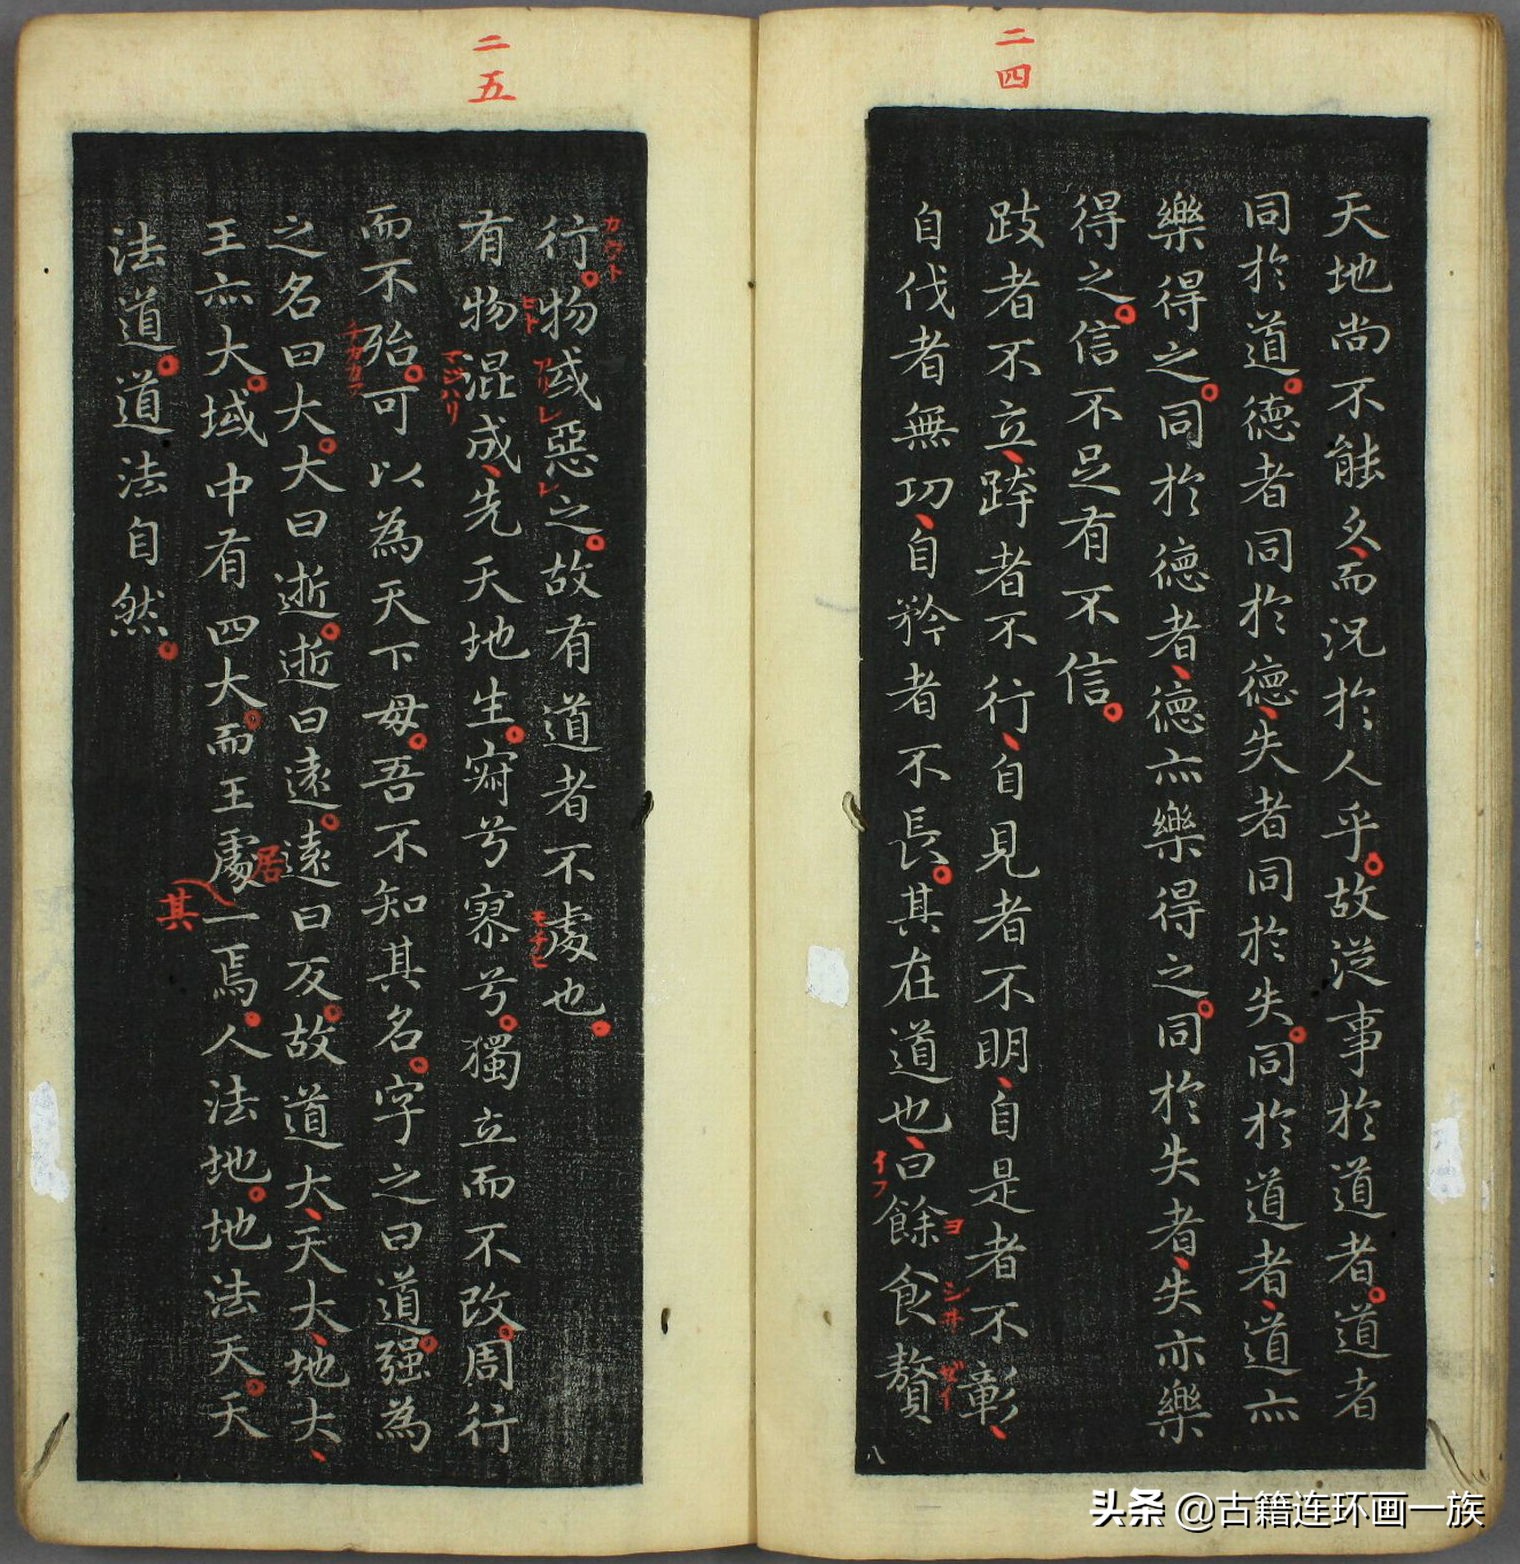 二四
天地尚不能久、而況於人乎。故從事於道者。道者
同於道。德者同於德、失者同於失。同於道者、道亦
樂得之。同於德者、德亦樂得之。同於失者、失亦樂
得之。信不足有不信。
跂者不立、跨者不行、自見者不明、自是者不彰、
自伐者無功、自矜者不長。其在道也、曰餘食贅
イフ
ヨ
シヰ
ゼイ
八
二五
行。物或惡之。故有道者不處也。
ヒト
有物混成、先天地生。寂兮寥兮。獨立而不改。周行
マジハリ
而不殆。可以為天下母。吾不知其名。字之曰道。强為
之名曰大。大曰逝。逝曰遠。遠曰反。故道大、天大、地大、
王亦大。域中有四大。而王處一焉。人法地。地法天。天
居
其
法道。道法自然。
头条 @古籍连环画一族